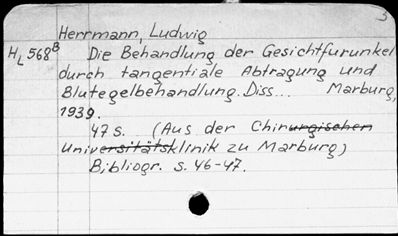 3
Herrmann, Ludwig
HL 568B Die Behandlung der Gesichtfurunkel
durch tangentiale Abtragung und
Blutegelbehandlung. Diss... Marburg,
1939.
47 S. (Aus der Chirurgischen
Universitätsklinik zu Marburg)
Bibliogr. S. 46-47.